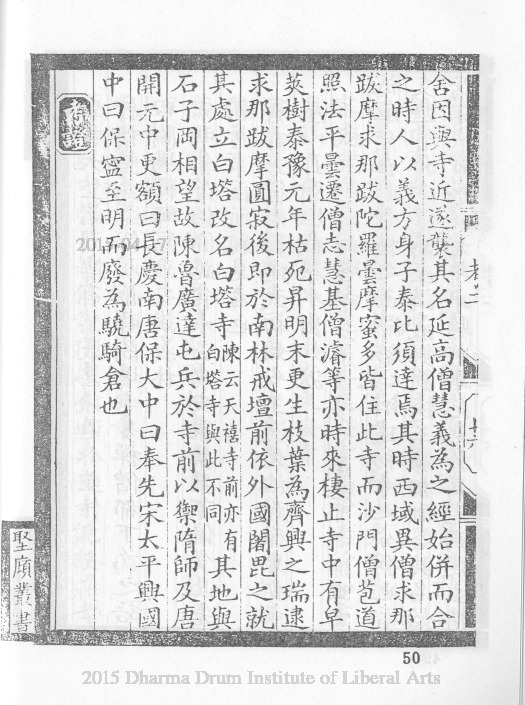 舍因與寺近遂襲其名延高僧慧義為之經始併而合
之時人以義方身子泰比須達焉其時西域異僧求那
跋摩求那跋陀羅曇摩蜜多皆住此寺而沙門僧苞道
照法平曇遷僧志慧基僧濬等亦時來棲止寺中有皁
莢樹泰豫元年枯死昇明末更生枝葉為齊興之瑞逮
求那跋摩圓寂後即於南林戒壇前依外國闍毘之就
其處立白塔改名白塔寺陳云天禧寺前亦有白塔寺與此不同其地與
石子岡相望故陳魯廣達屯兵於寺前以禦隋師及唐
開元中更額曰長慶南唐保大中曰奉先宋太平興國
中曰保寧至明而廢為驍騎倉也
考證
卷二
聖廎叢書
50
2015 Dharma Drum Institute of Liberal Arts